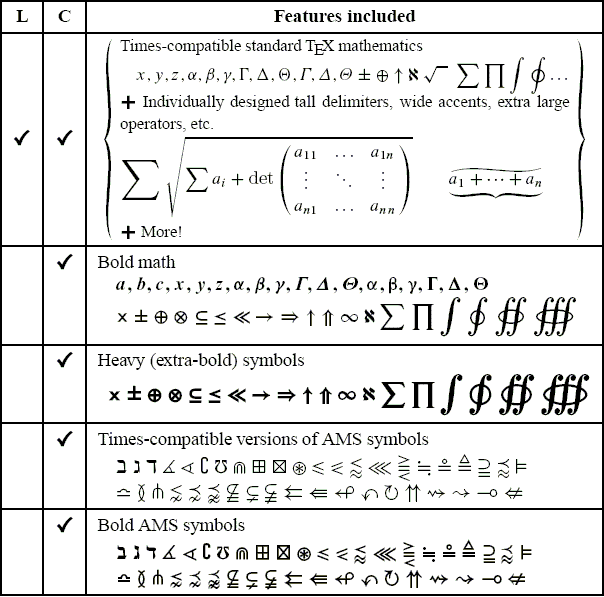 L C Features included
✓ ✓ Times-compatible standard TEX mathematics
x, y, z, α, β, γ, Γ, Δ, Θ, Γ, Δ, Θ ± ⊕ ↑ ℵ √ ∑ ∏ ∫ ∮ …
+ Individually designed tall delimiters, wide accents, extra large
operators, etc.
∑ √ ∑ aᵢ + det ( a₁₁ … a₁ₙ
⋮ ⋱ ⋮
aₙ₁ … aₙₙ ) a₁ + ⋯ + aₙ
+ More!
✓ Bold math
a, b, c, x, y, z, α, β, γ, Γ, Δ, Θ, α, β, γ, Γ, Δ, Θ
× ± ⊕ ⊗ ⊆ ≤ ≪ → ⇒ ↑ ⇑ ∞ ℵ ∑ ∏ ∫ ∮ ∯ ∰
✓ Heavy (extra-bold) symbols
× ± ⊕ ⊗ ⊆ ≤ ≪ → ⇒ ↑ ⇑ ∞ ℵ ∑ ∏ ∫ ∮ ∯ ∰
✓ Times-compatible versions of AMS symbols
✓ Bold AMS symbols